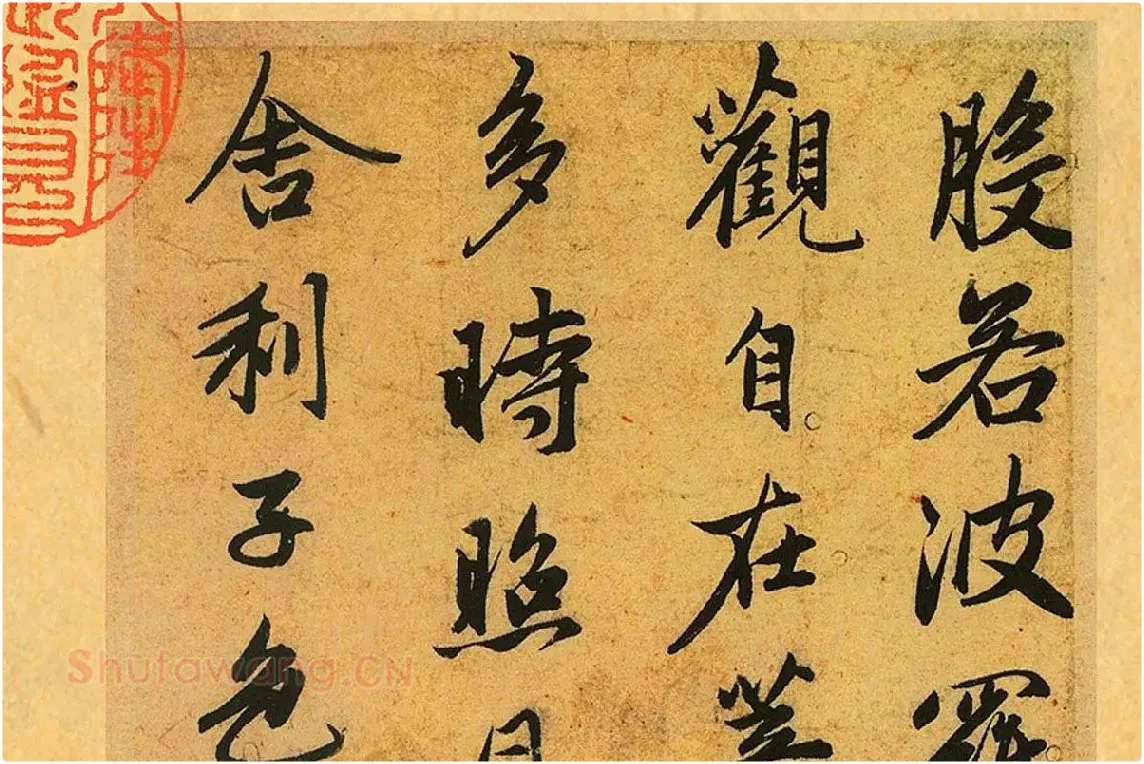 般若波羅
觀自在菩
多時照見
舍利子色
Shufawang.CN